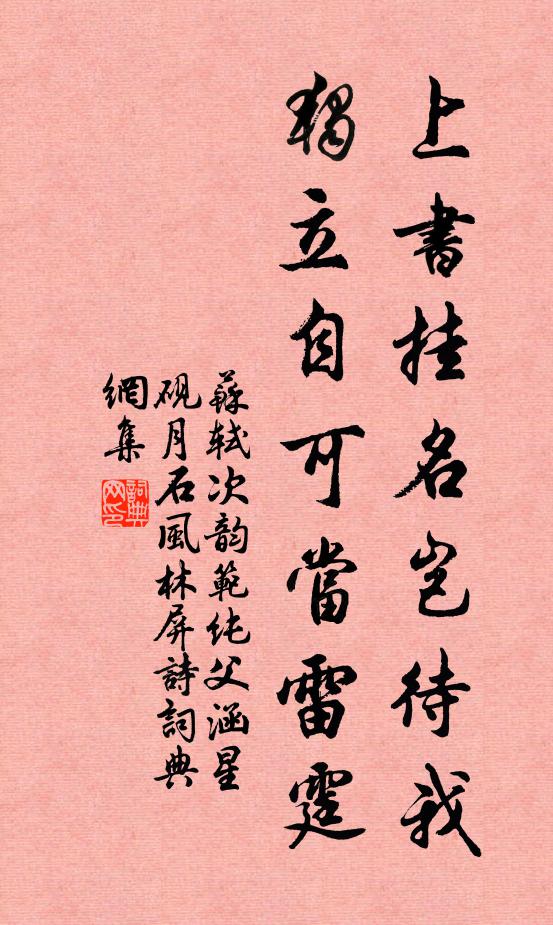 上書挂名豈待我
獨立自可當雷霆
蘇軾次韵範純父涵星
硯月石風林屏詩詞典
網集
詞典網印